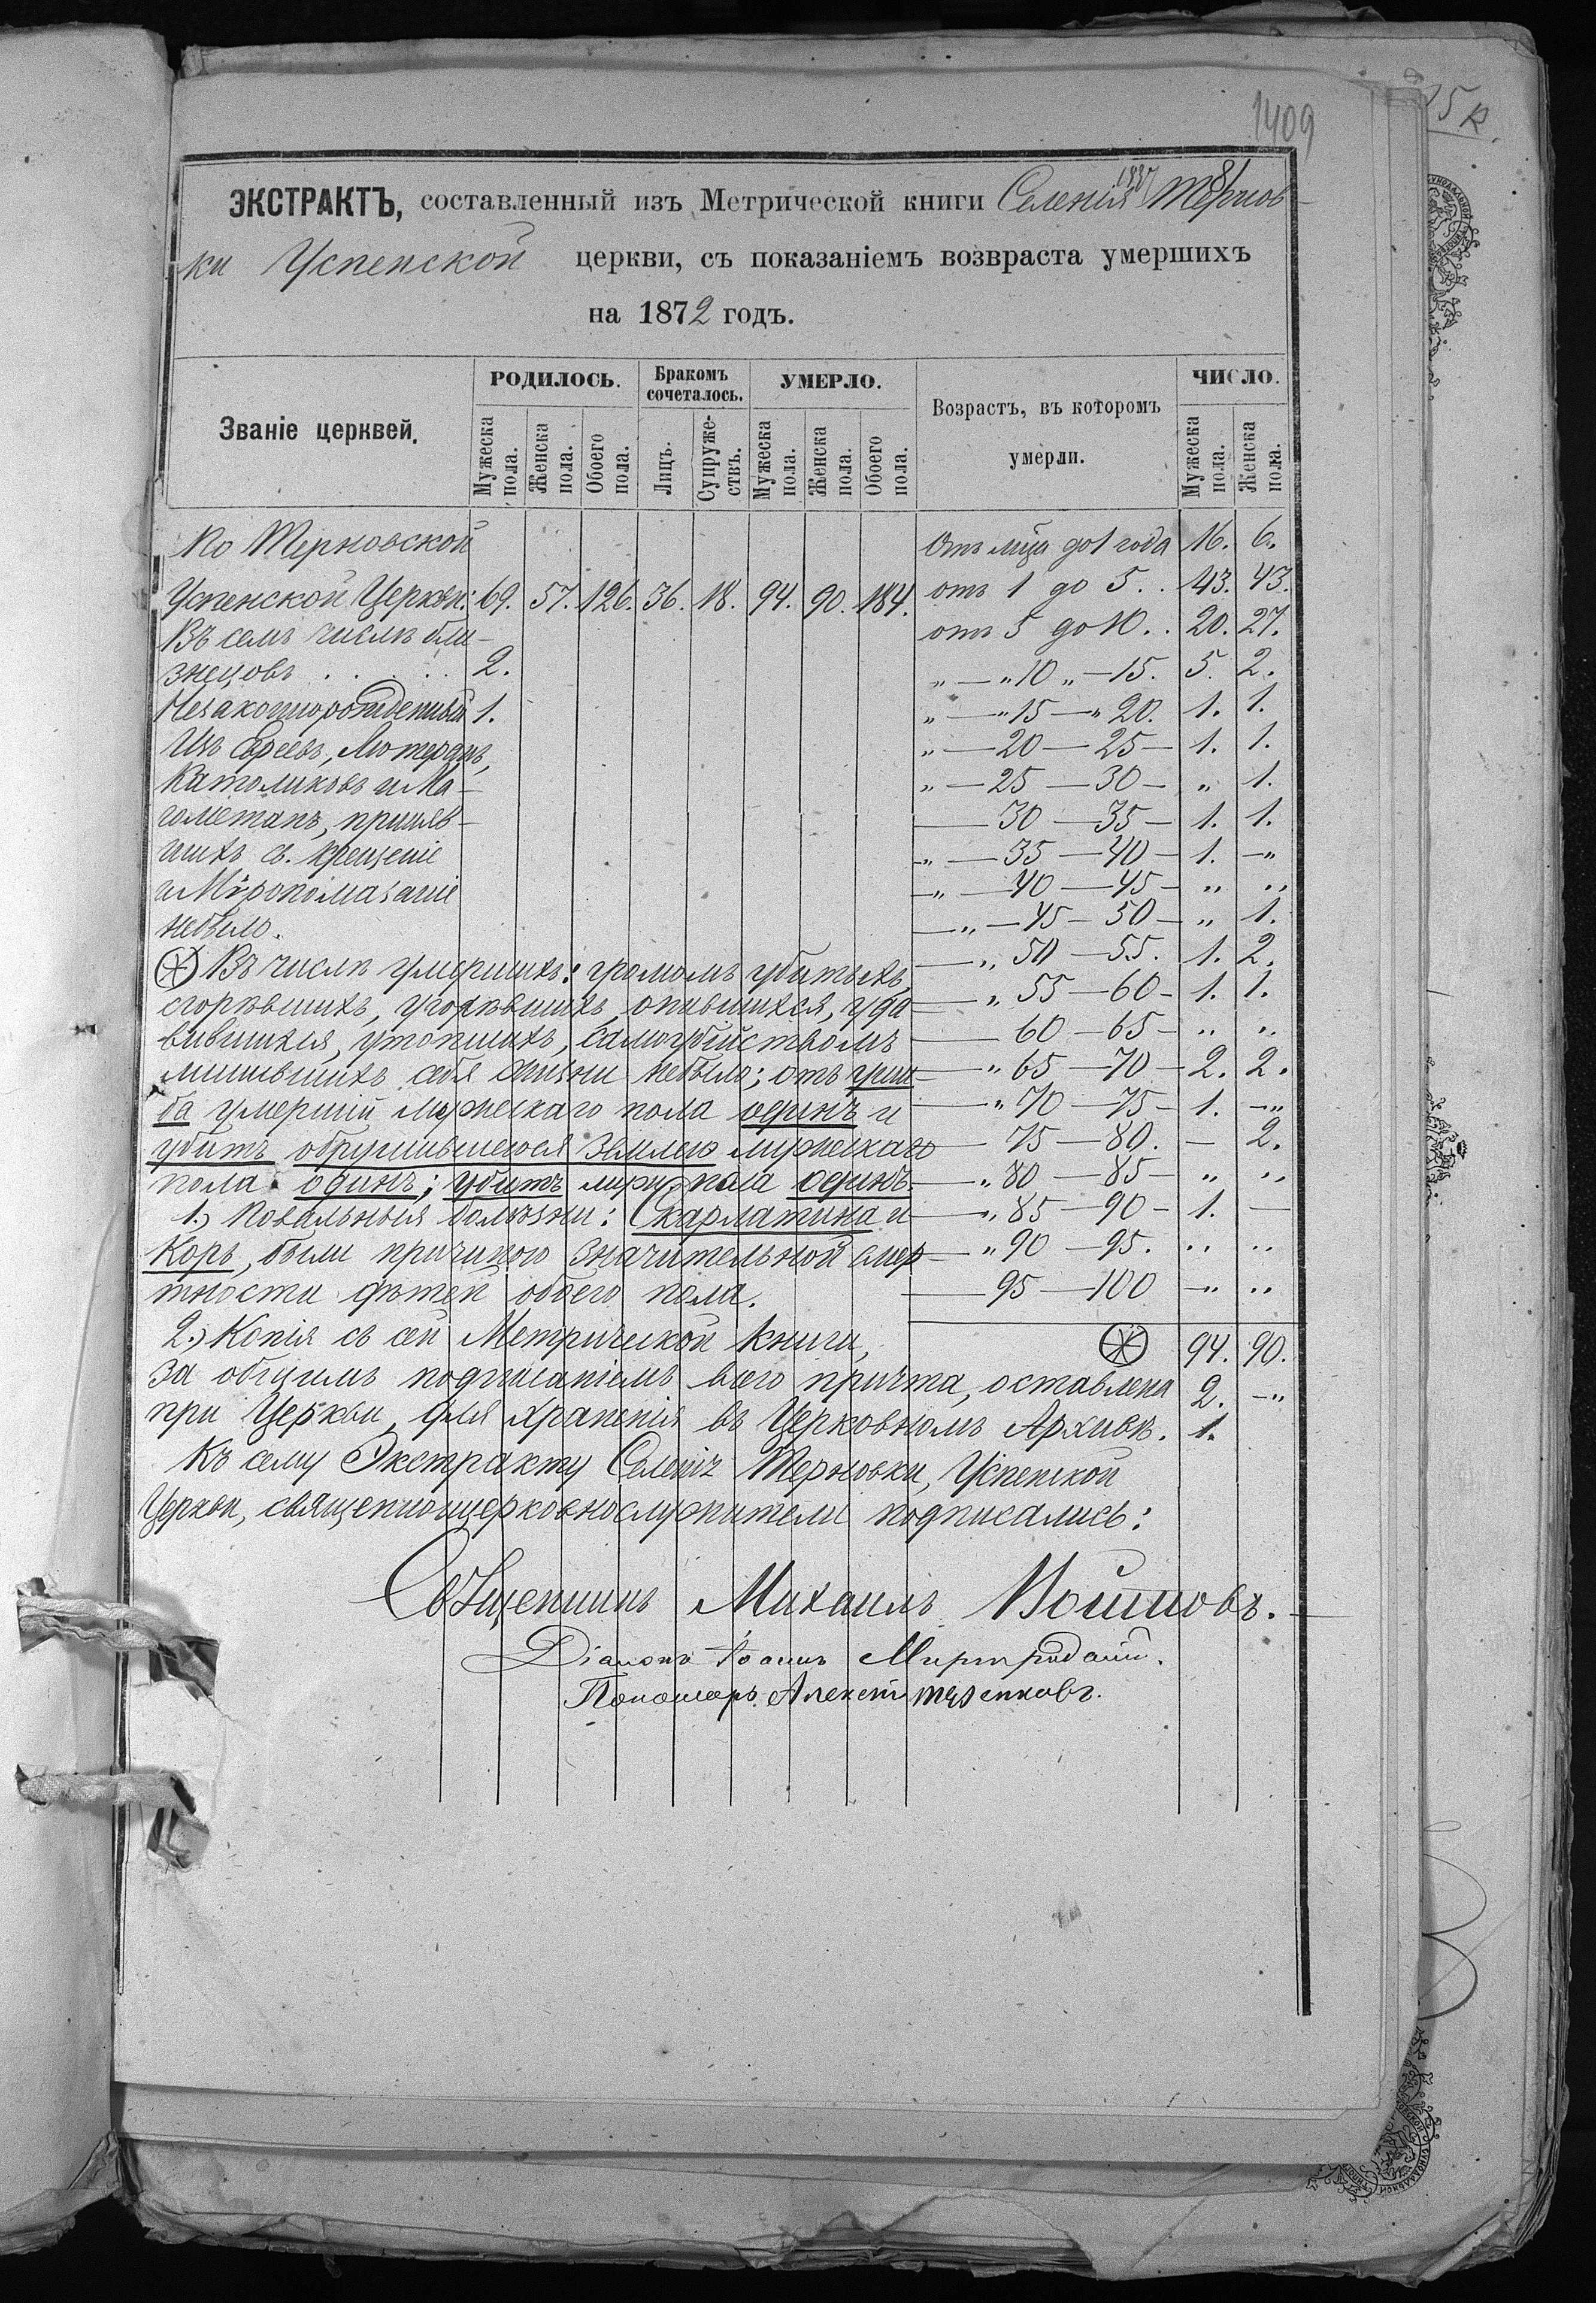 1409
15 к.
1337
81
ЭКСТРАКТЪ, составленный изъ Метрической книги Селенія Тернов-
ки Успенской церкви, съ показаніемъ возвраста умершихъ
на 1872 годъ.
Званіе церквей.
РОДИЛОСЬ.
Мужеска пола.
Женска пола.
Обоего пола.
Бракомъ сочеталось.
Лицъ.
Супруже-ствъ.
УМЕРЛО.
Мужеска пола.
Женска пола.
Обоего пола.
Возрастъ, въ которомъ
умерли.
ЧИСЛО.
Мужеска пола.
Женска пола.
По Терновской
Успенской Церкви: 69. 57. 126. 36. 18. 94. 90. 184.
Въ семъ числѣ бли-
знецовъ . . . . . 2.
Незаконнорожденный 1.
Изъ Евреевъ, Лютеранъ,
Католиковъ и Ма-
гометанъ, приняв-
шихъ св. крещеніе
и Мѵропомазаніе
небыло.
Въ числѣ умершихъ: громомъ убитыхъ,
сгорѣвшихъ, угорѣвшихъ, опившихся, уда-
вившихся, утопшихъ, самоубійствомъ
лишившихъ себя жизни небыло; отъ уши-
ба умершій мужескаго пола одинъ и
убитъ обрушившеюся землею мужескаго
пола одинъ; убитъ муж. пола одинъ.
1.) Повальныя болѣзни: Скарлатина и
Корь, были причиною значительной смер-
тности дѣтей обоего пола.
2.) Копія съ сей Метрической книги,
за общимъ подписаніемъ всего причта, оставлена
при Церкви, для храненія въ Церковномъ Архивѣ.
Къ сему Экстракту Селенія Терновки, Успенской
Церкви, священноицерковнослужители подписались:
Отъ лица до 1 года 16. 6.
отъ 1 до 5. . 43. 43.
отъ 5 до 10. . 20. 27.
„ — „ 10 „ — 15. 5. 2.
„ — „ 15 — „ 20. 1. 1.
„ — 20 — 25 — 1. 1.
„ — 25 — 30 — „ 1.
— 30 — 35 — 1. 1.
„ — 35 — 40 — 1. — „
„ — 40 — 45 — „ „
— „ — 45 — 50 — „ 1.
— „ 50 — 55. 1. 2.
— „ 55 — 60 — 1. 1.
— 60 — 65 — „ „
— „ 65 — 70 — 2. 2.
— „ 70 — 75 — 1. — „
— 75 — 80. — 2.
— „ 80 — 85 — „ „
— „ 85 — 90 — 1. —
— „ 90 — 95. „ „
— 95 — 100 — „ „
94. 90.
2. — „
1.
Священникъ Михаилъ Войновъ.
Діаконъ Іоаннъ
Пономарь Алексѣй